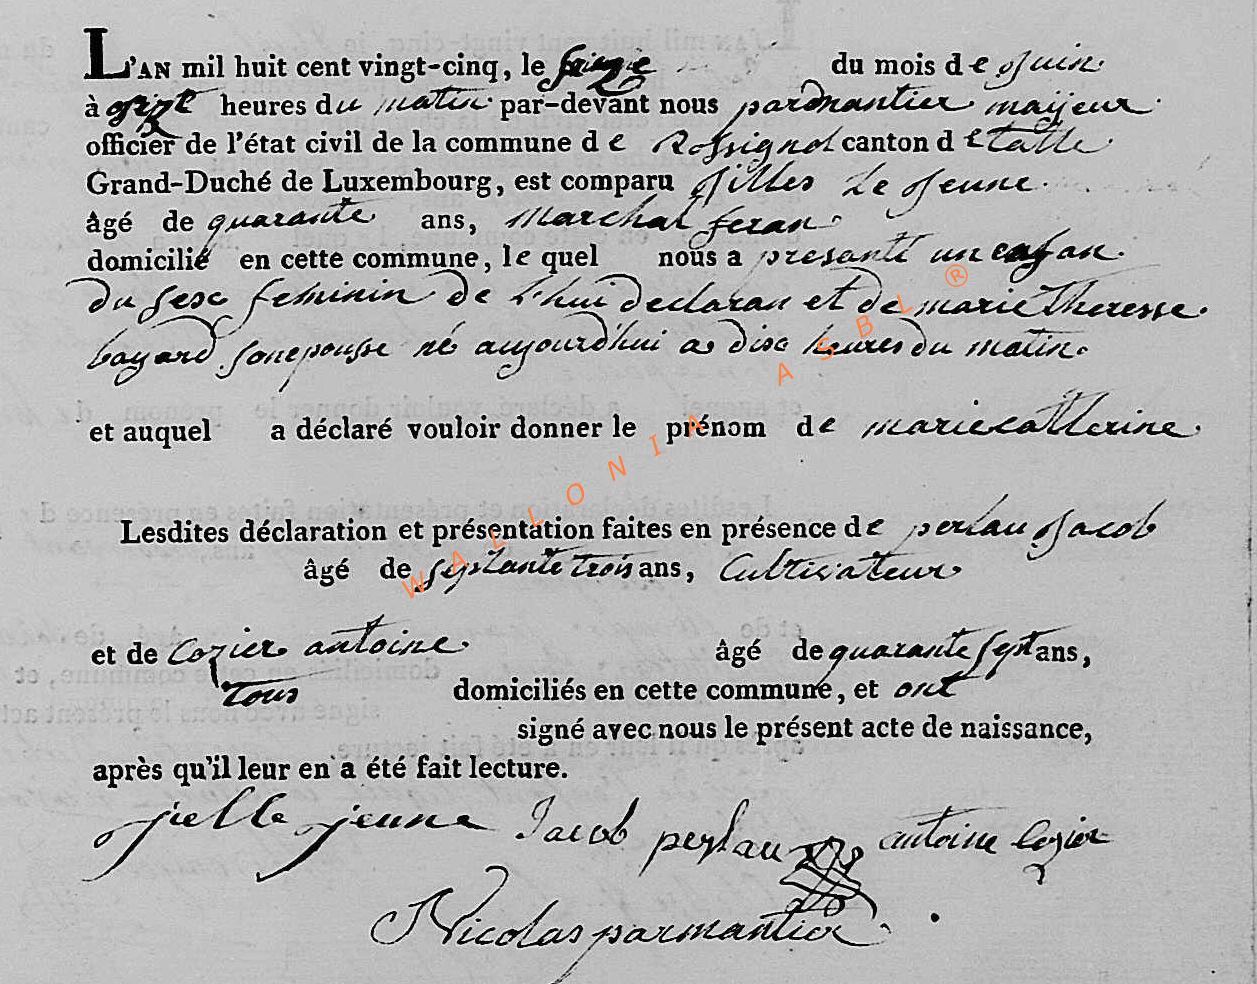 L'AN mil huit cent vingt-cinq, le seizie du mois de Juin
à onze heures du matin par-devant nous parmantier maijeur
officier de l'état civil de la commune de Rossignol canton d etalle
Grand-Duché de Luxembourg, est comparu Gilles Le Jeune
âgé de quarante ans, marchal feran
domicilié en cette commune, le quel nous a presanté un enfan
du sexe feminin de L'hui declaran et de marie Theresse
bayard son epousse né aujourd'hui a dix heures du matin
et auquel a déclaré vouloir donner le prénom de marie catherine
Lesdites déclaration et présentation faites en présence de perlau Jacob
âgé de septante trois ans, Cultivateur
et de Cozier antoine âgé de quarante sept ans,
tous domiciliés en cette commune, et ont
signé avec nous le présent acte de naissance,
après qu'il leur en a été fait lecture.
jielle jeune Jacob perlau antoine Cozier
Nicolas parmantier
WALLONIA ASBL ®